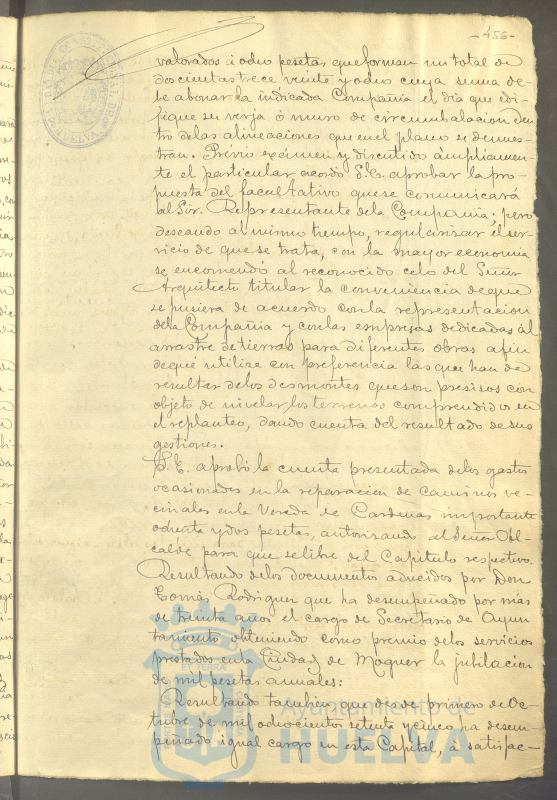 -456-
valorados á ocho pesetas que forman un total de
doscientas trece veinte y ocho cuya suma de-
be abonar la indicada Compañia el dia que edi-
fique su verja ó muro de circumbalacion den-
tro de las alineaciones que en el plano se demues-
tran. Prévio exámen y discutido ámpliamen-
te el particular acordó S.E. aprobar la pro-
puesta del facultativo que se comunicará
al Sor. Representante de la Compañia; pero
deseando al mismo tiempo, regularizar el ser-
vicio de que se trata, con la mayor economia
se encomendó al reconocido celo del Señor
Arquitecto titular la conveniencia de que
se pusiera de acuerdo con la representacion
de la Compañia y con las empresas dedicadas al
arrastre de tierras para diferentes obras a fin
de que utilize con preferencia las que han de
resultar de los desmontes que son presisos con
objeto de nivelar los terrenos comprendidos en
el replanteo, dando cuenta del resultado de sus
gestiones.
S. E. aprobó la cuenta presentada de los gastos
ocasionados en la reparacion de Caminos ve-
cinales en la Vereda de Cardenas importante
ochenta y dos pesetas, autorizando al Señor Al-
calde para que se libre del Capitulo respectivo.
Resultando de los documentos aducidos por Don
Tomás Rodriguez que ha desempeñado por más
de treinta años el cargo de Secretario de Ayun-
tamiento obteniendo como premio de los servicios
prestados en la Ciudad de Moguer la jubilacion
de mil pesetas anuales:
Resultando tambien que desde primero de Oc-
tubre de mil ochocientos setenta y cinco ha desem-
peñado igual cargo en esta Capital, á satisfac-
Ayuntamiento de
HUELVA